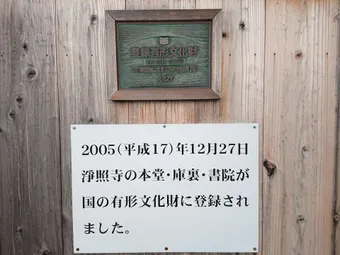 登録有形文化財
2005(平成17)年12月27日
淨照寺の本堂・庫裏・書院が
国の有形文化財に登録され
ました。